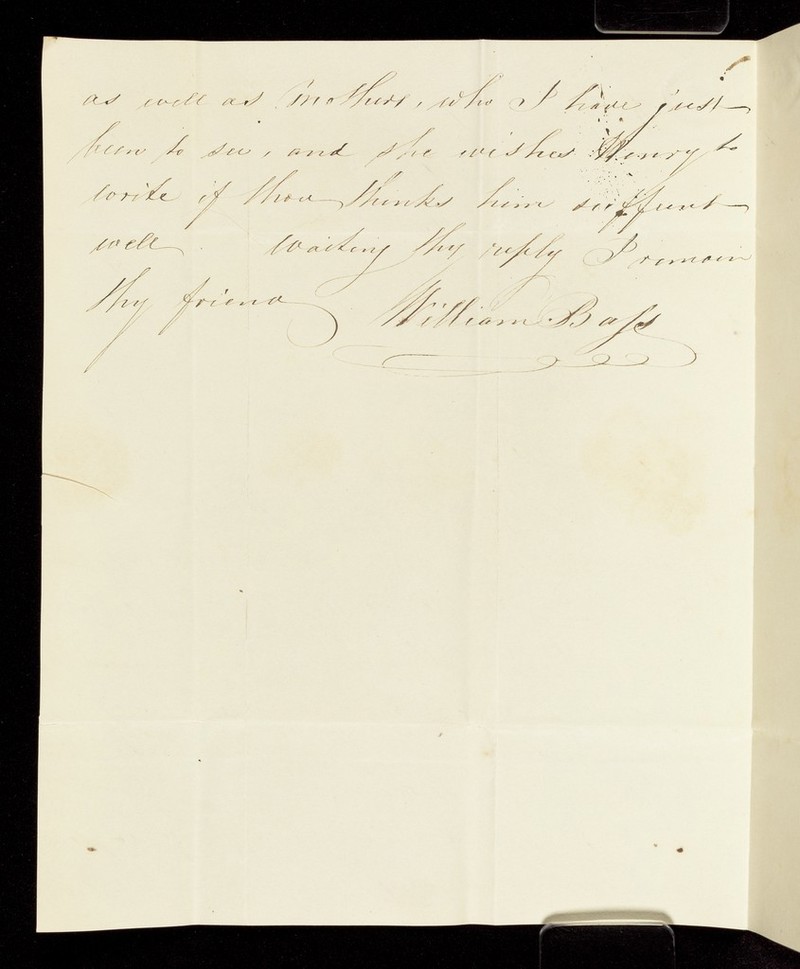 as well as Mothers, who I have just
been to see, and she wishes Henry to
write if thou thinks him suffient
well. Waiting thy reply I remain
thy friend William Bass